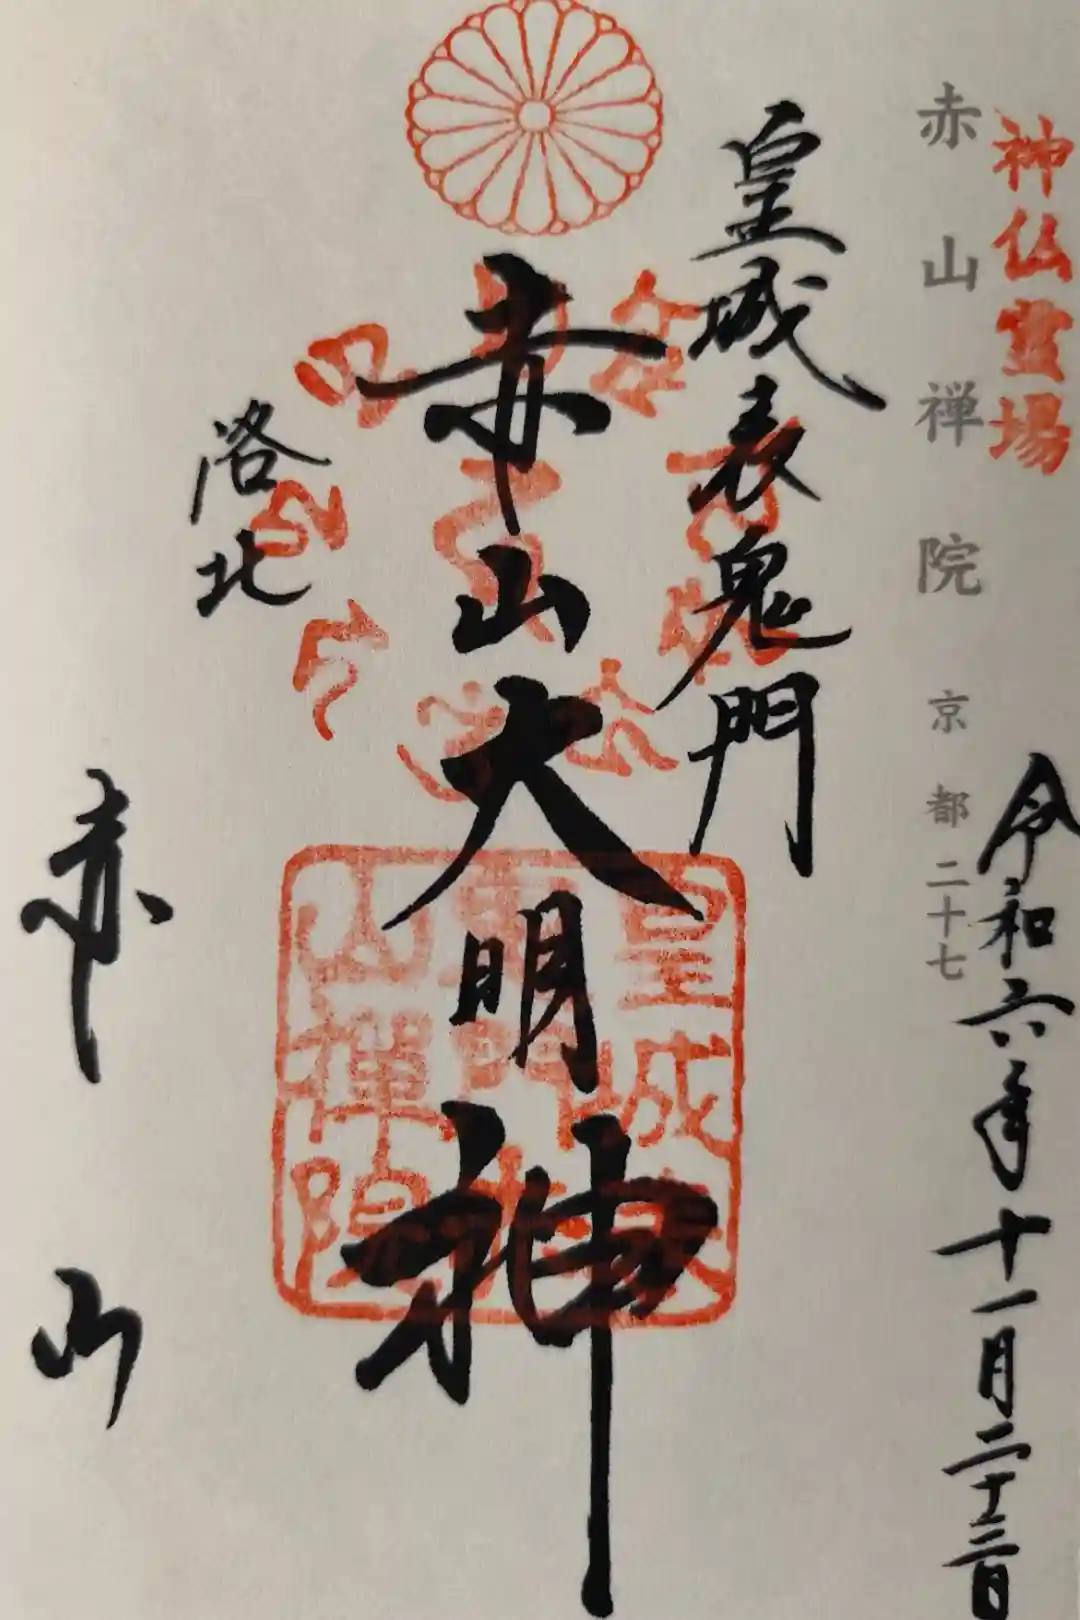 神仏霊場
赤山禅院 京都 二十七
令和六年十一月二十三日
皇城表鬼門
赤山大明神
皇城表
鬼門
山禅院
洛北
赤山